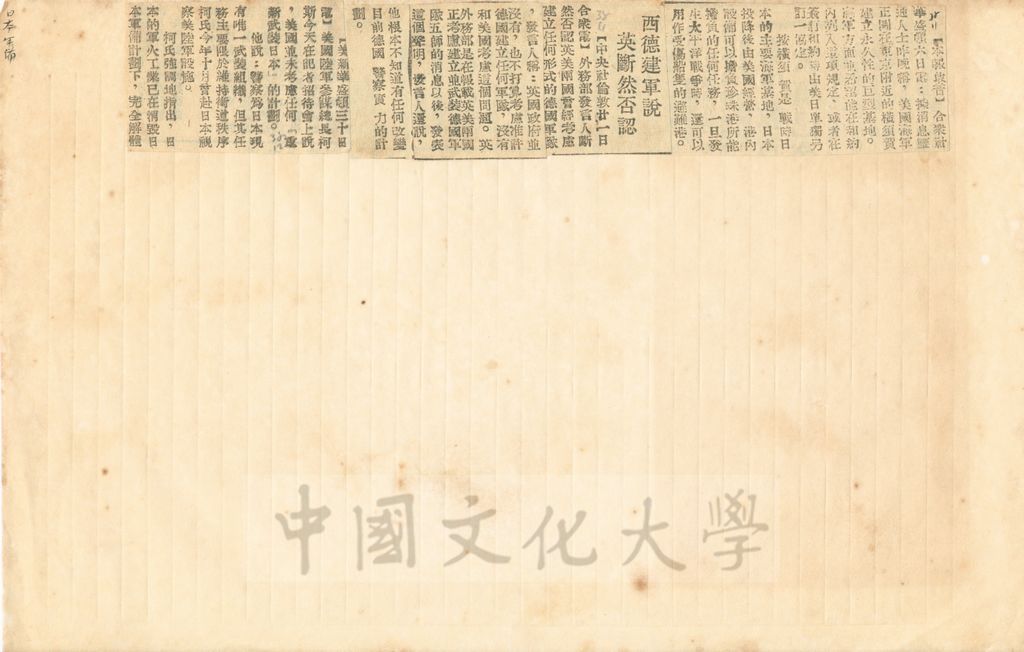 【本報收音】合衆社
華盛頓本日電：據消息靈
通人士昨晚稱，美國海軍
正謀在東京附近的橫須賀
建立永久性的巨型基地。
海軍方面
內列入這項規定，或者在
簽訂和約時由美日單獨另
訂一協定。
按橫須賀是戰時日
本的主要海軍基地，日本
投降後由美國經營，港內
設備可以擔負珍珠港所能
擔負的任何任務，一旦發
生太平洋戰爭時，還可以
用作受傷船隻的避難港。
西德建軍說
英斷然否認
【中央社倫敦廿一日
合衆電】外務部發言人斷
然否認英美兩國曾經考慮
建立任何形式的德國軍隊
，發言人稱：英國政府並
沒有，也不打算考慮推計
德國建立任何軍隊，沒有
和美國考慮這個問題。英
外務部是在報載英美兩國
正考慮建立重武裝德國軍
隊五師的消息以後，發表
這個聲明，發言人還說，
他根本不知道有任何改變
目前德國警察實力的計
劃。
【美新華盛頓三十日
電】美國陸軍參謀總長柯
斯今天在記者招待會上說
，美國並未考慮任何「重
新武裝日本」的計劃。
他說：警察爲日本現
有唯一武裝組織，但其任
務主要限於維持街道秩序
柯氏今年十月曾赴日本視
察美陸軍設施。
柯氏強調地指出，日
本的軍火工業已在消毀日
本軍備計劃下，完全解體
中國文化大學